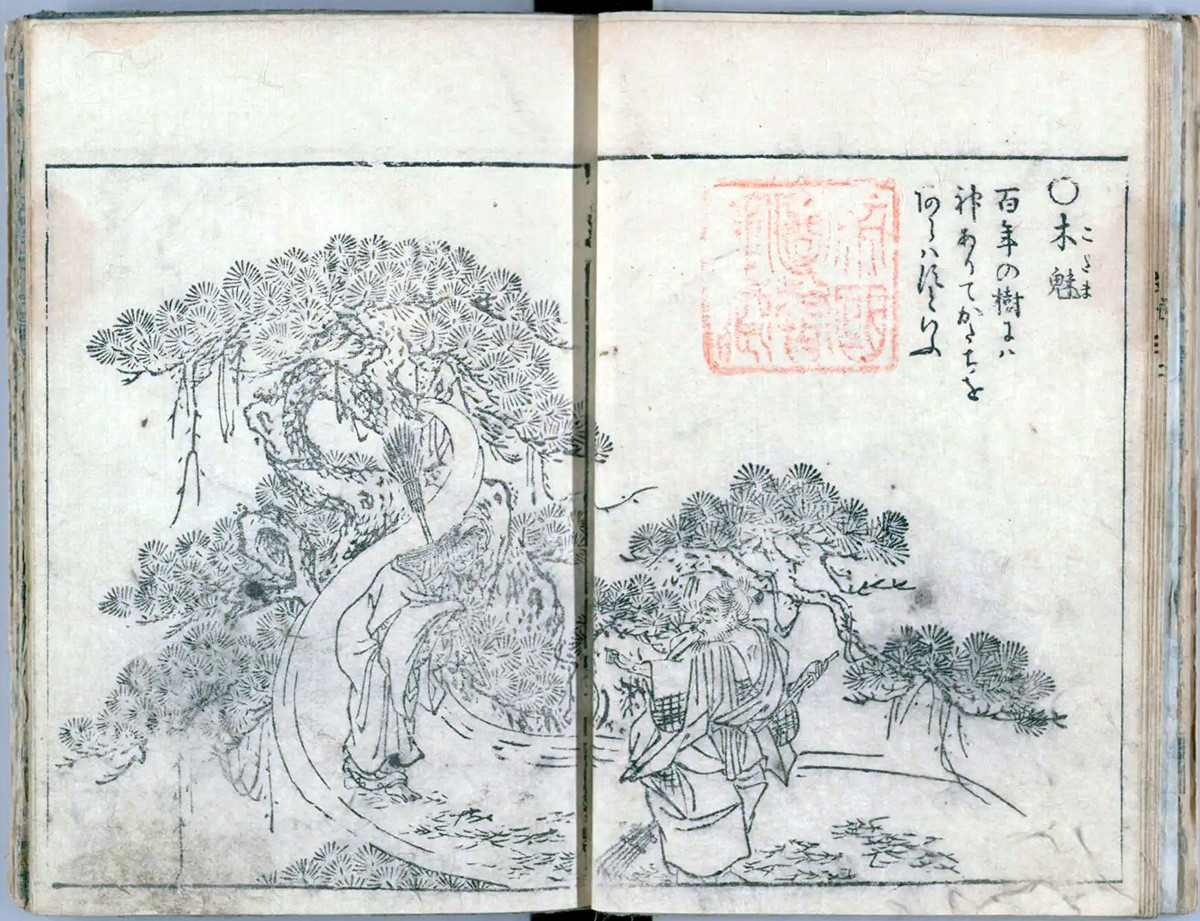 〇木魅
こだま
百年の樹には
神ありてかたちを
あらはすといふ